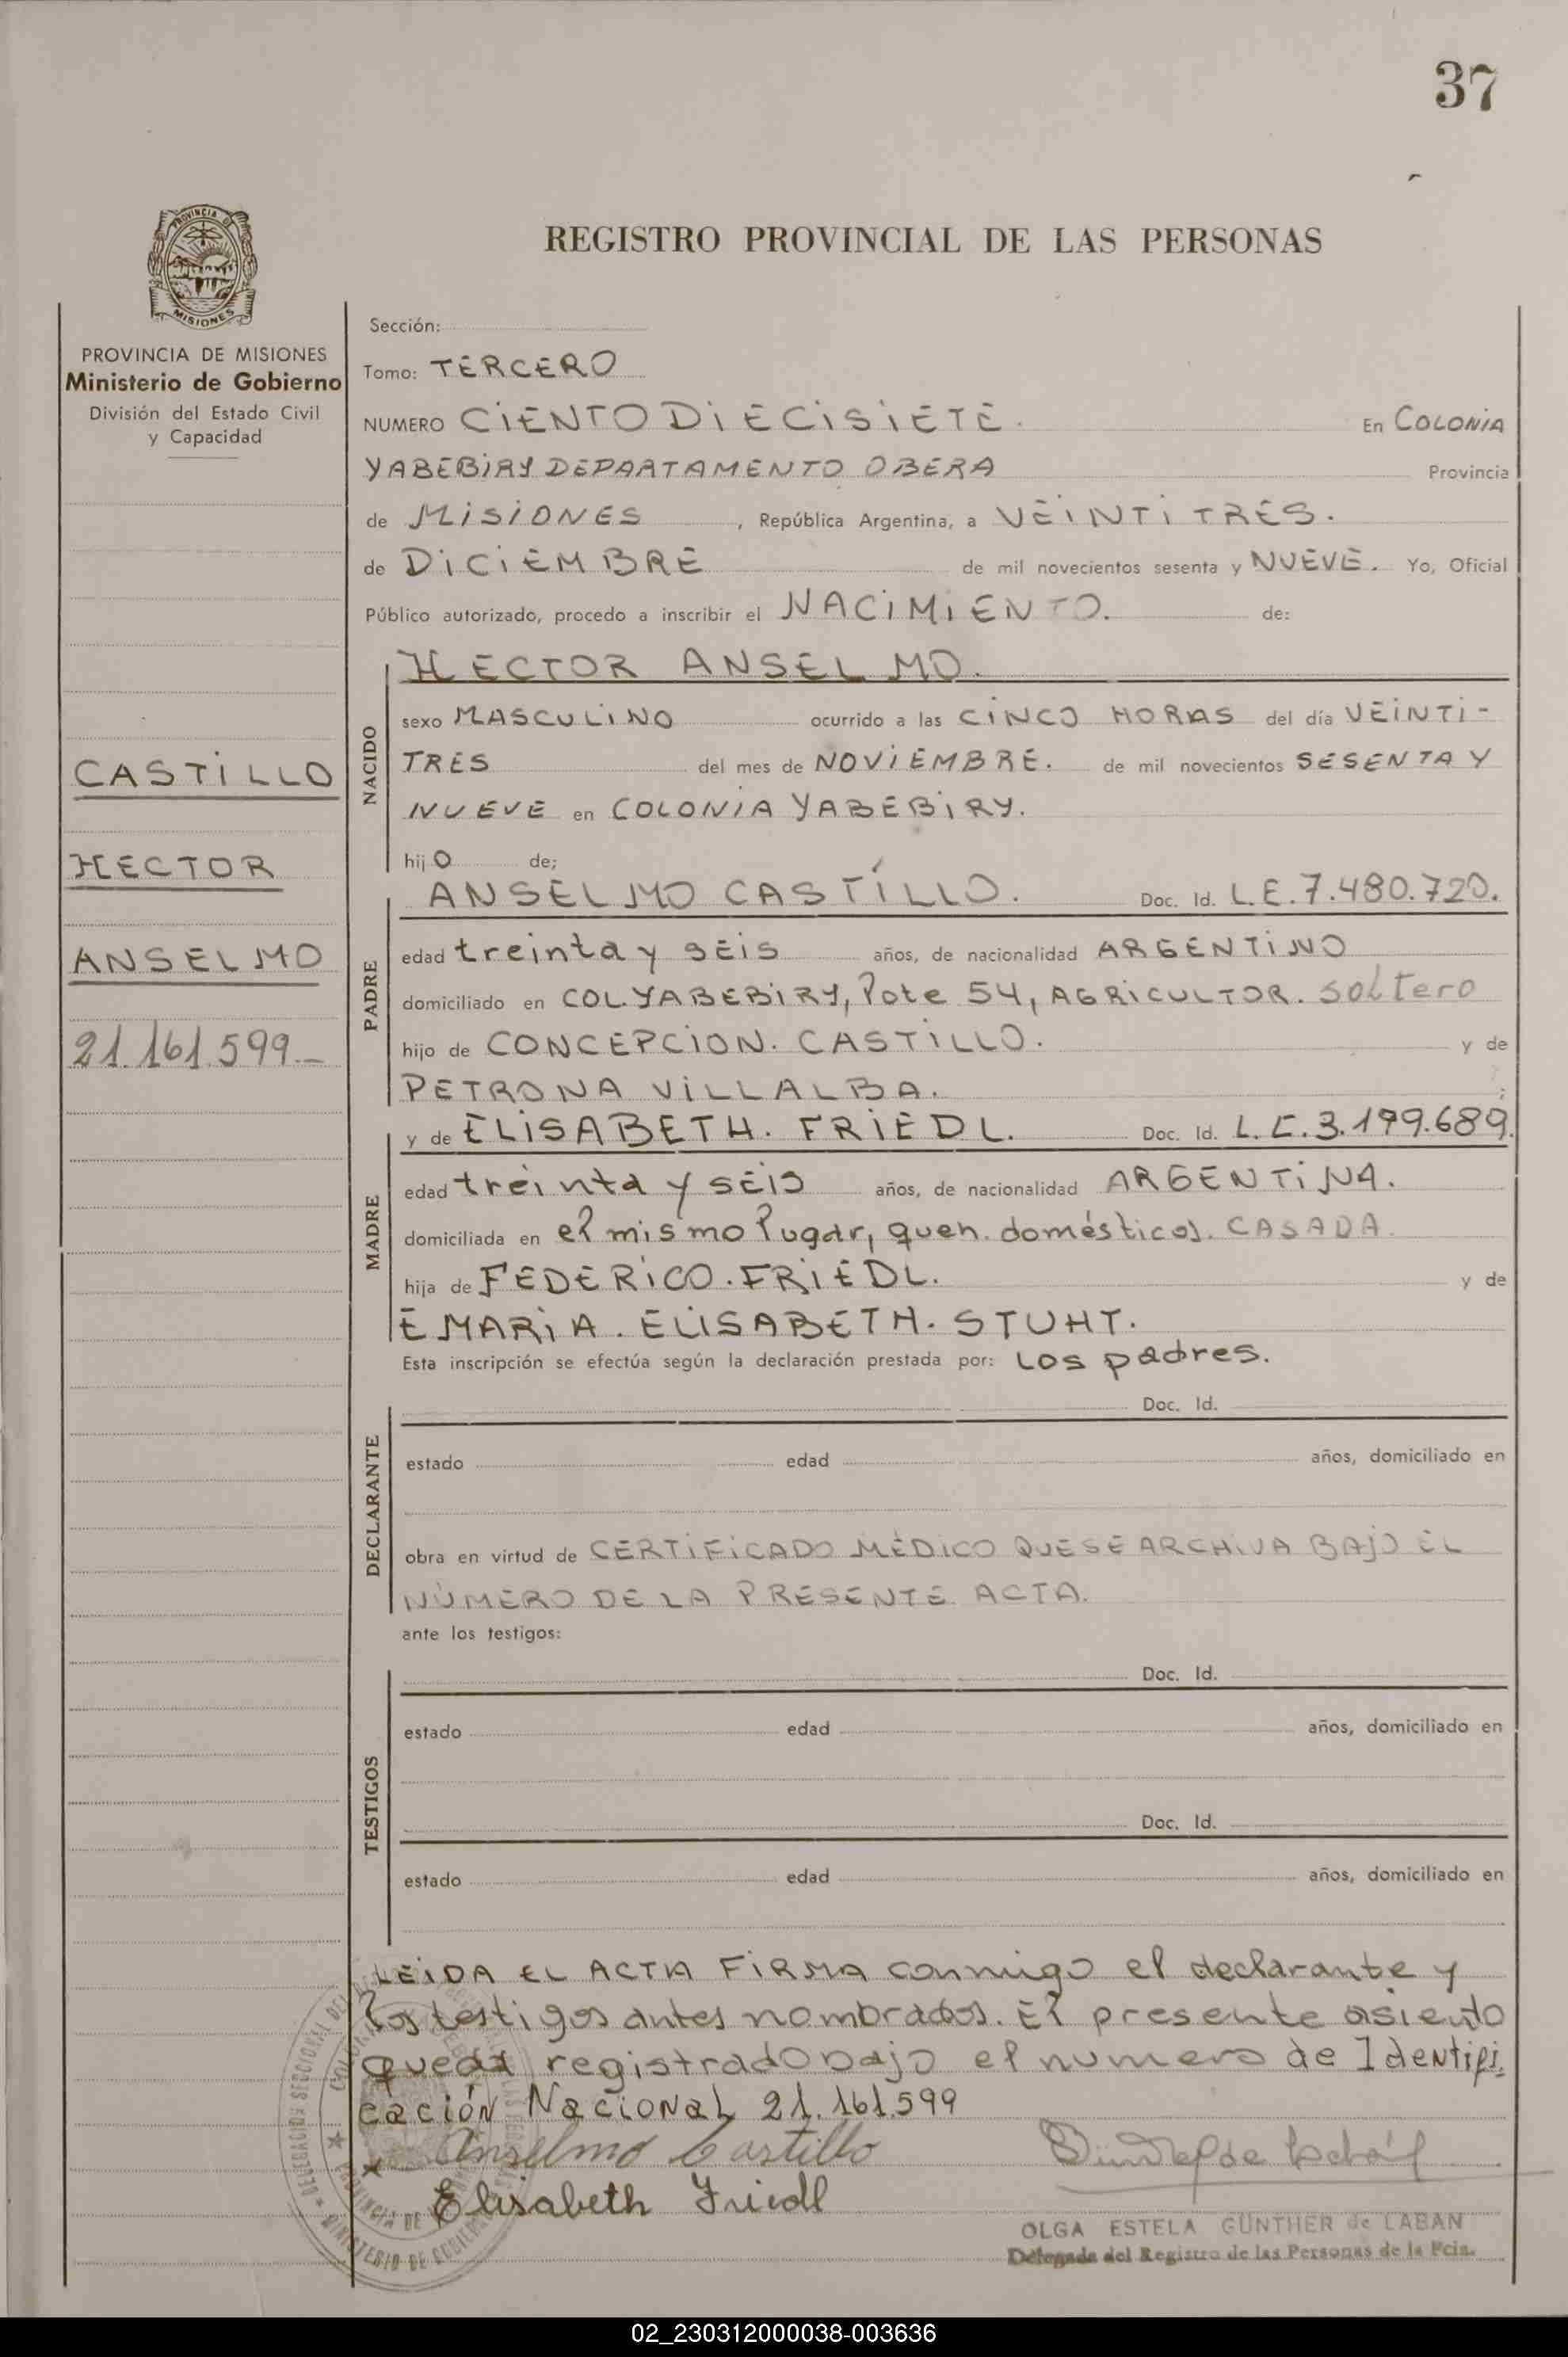 37
PROVINCIA DE
MISIONES
REGISTRO PROVINCIAL DE LAS PERSONAS
PROVINCIA DE MISIONES
Ministerio de Gobierno
División del Estado Civil
y Capacidad
CASTILLO
HECTOR
ANSELMO
21.161.599.-
Sección:
Tomo: TERCERO
NUMERO CIENTO DIECISIETE. En COLONIA
YABEBIRY DEPARTAMENTO OBERA Provincia
de MISIONES, República Argentina, a VEINTITRES.
de DICIEMBRE de mil novecientos sesenta y NUEVE. Yo, Oficial
Público autorizado, procedo a inscribir el NACIMIENTO. de:
HECTOR ANSELMO.
NACIDO
sexo MASCULINO ocurrido a las CINCO HORAS del día VEINTI-
TRES del mes de NOVIEMBRE. de mil novecientos SESENTA Y
NUEVE en COLONIA YABEBIRY.
hijO de;
ANSELMO CASTÍLLO. Doc. Id. L.E.7.480.720.
PADRE
edad treinta y SEIS años, de nacionalidad ARGENTINO
domiciliado en COL.YABEBIRY, lote 54, AGRICULTOR. SOLTERO
hijo de CONCEPCION. CASTILLO. y de
PETRONA VILLALBA. ;
y de ELISABETH. FRIEDL. Doc. Id. L.C.3.199.689.
MADRE
edad treinta y SEIS años, de nacionalidad ARGENTINA.
domiciliada en el mismo lugar, queh. domésticos. CASADA.
hija de FEDERICO. FRIEDL. y de
E MARIA. ELISABETH. STUHT.
Esta inscripción se efectúa según la declaración prestada por: LOS padres.
Doc. Id.
DECLARANTE
estado edad años, domiciliado en
obra en virtud de CERTIFICADO MÉDICO QUE SE ARCHIVA BAJO EL
NÚMERO DE LA PRESENTE ACTA.
ante los testigos:
Doc. Id.
TESTIGOS
estado edad años, domiciliado en
Doc. Id.
estado edad años, domiciliado en
LEIDA EL ACTA FIRMA conmigo el declarante y
los testigos antes nombrados. El presente asiento
queda registrado bajo el numero de Identifi
cación Nacional 21.161.599
Anselmo Castillo
Elisabeth Friedl
OLGA ESTELA GÜNTHER de LABAN
Delegada del Registro de las Personas de la Pcia.
02_230312000038-003636